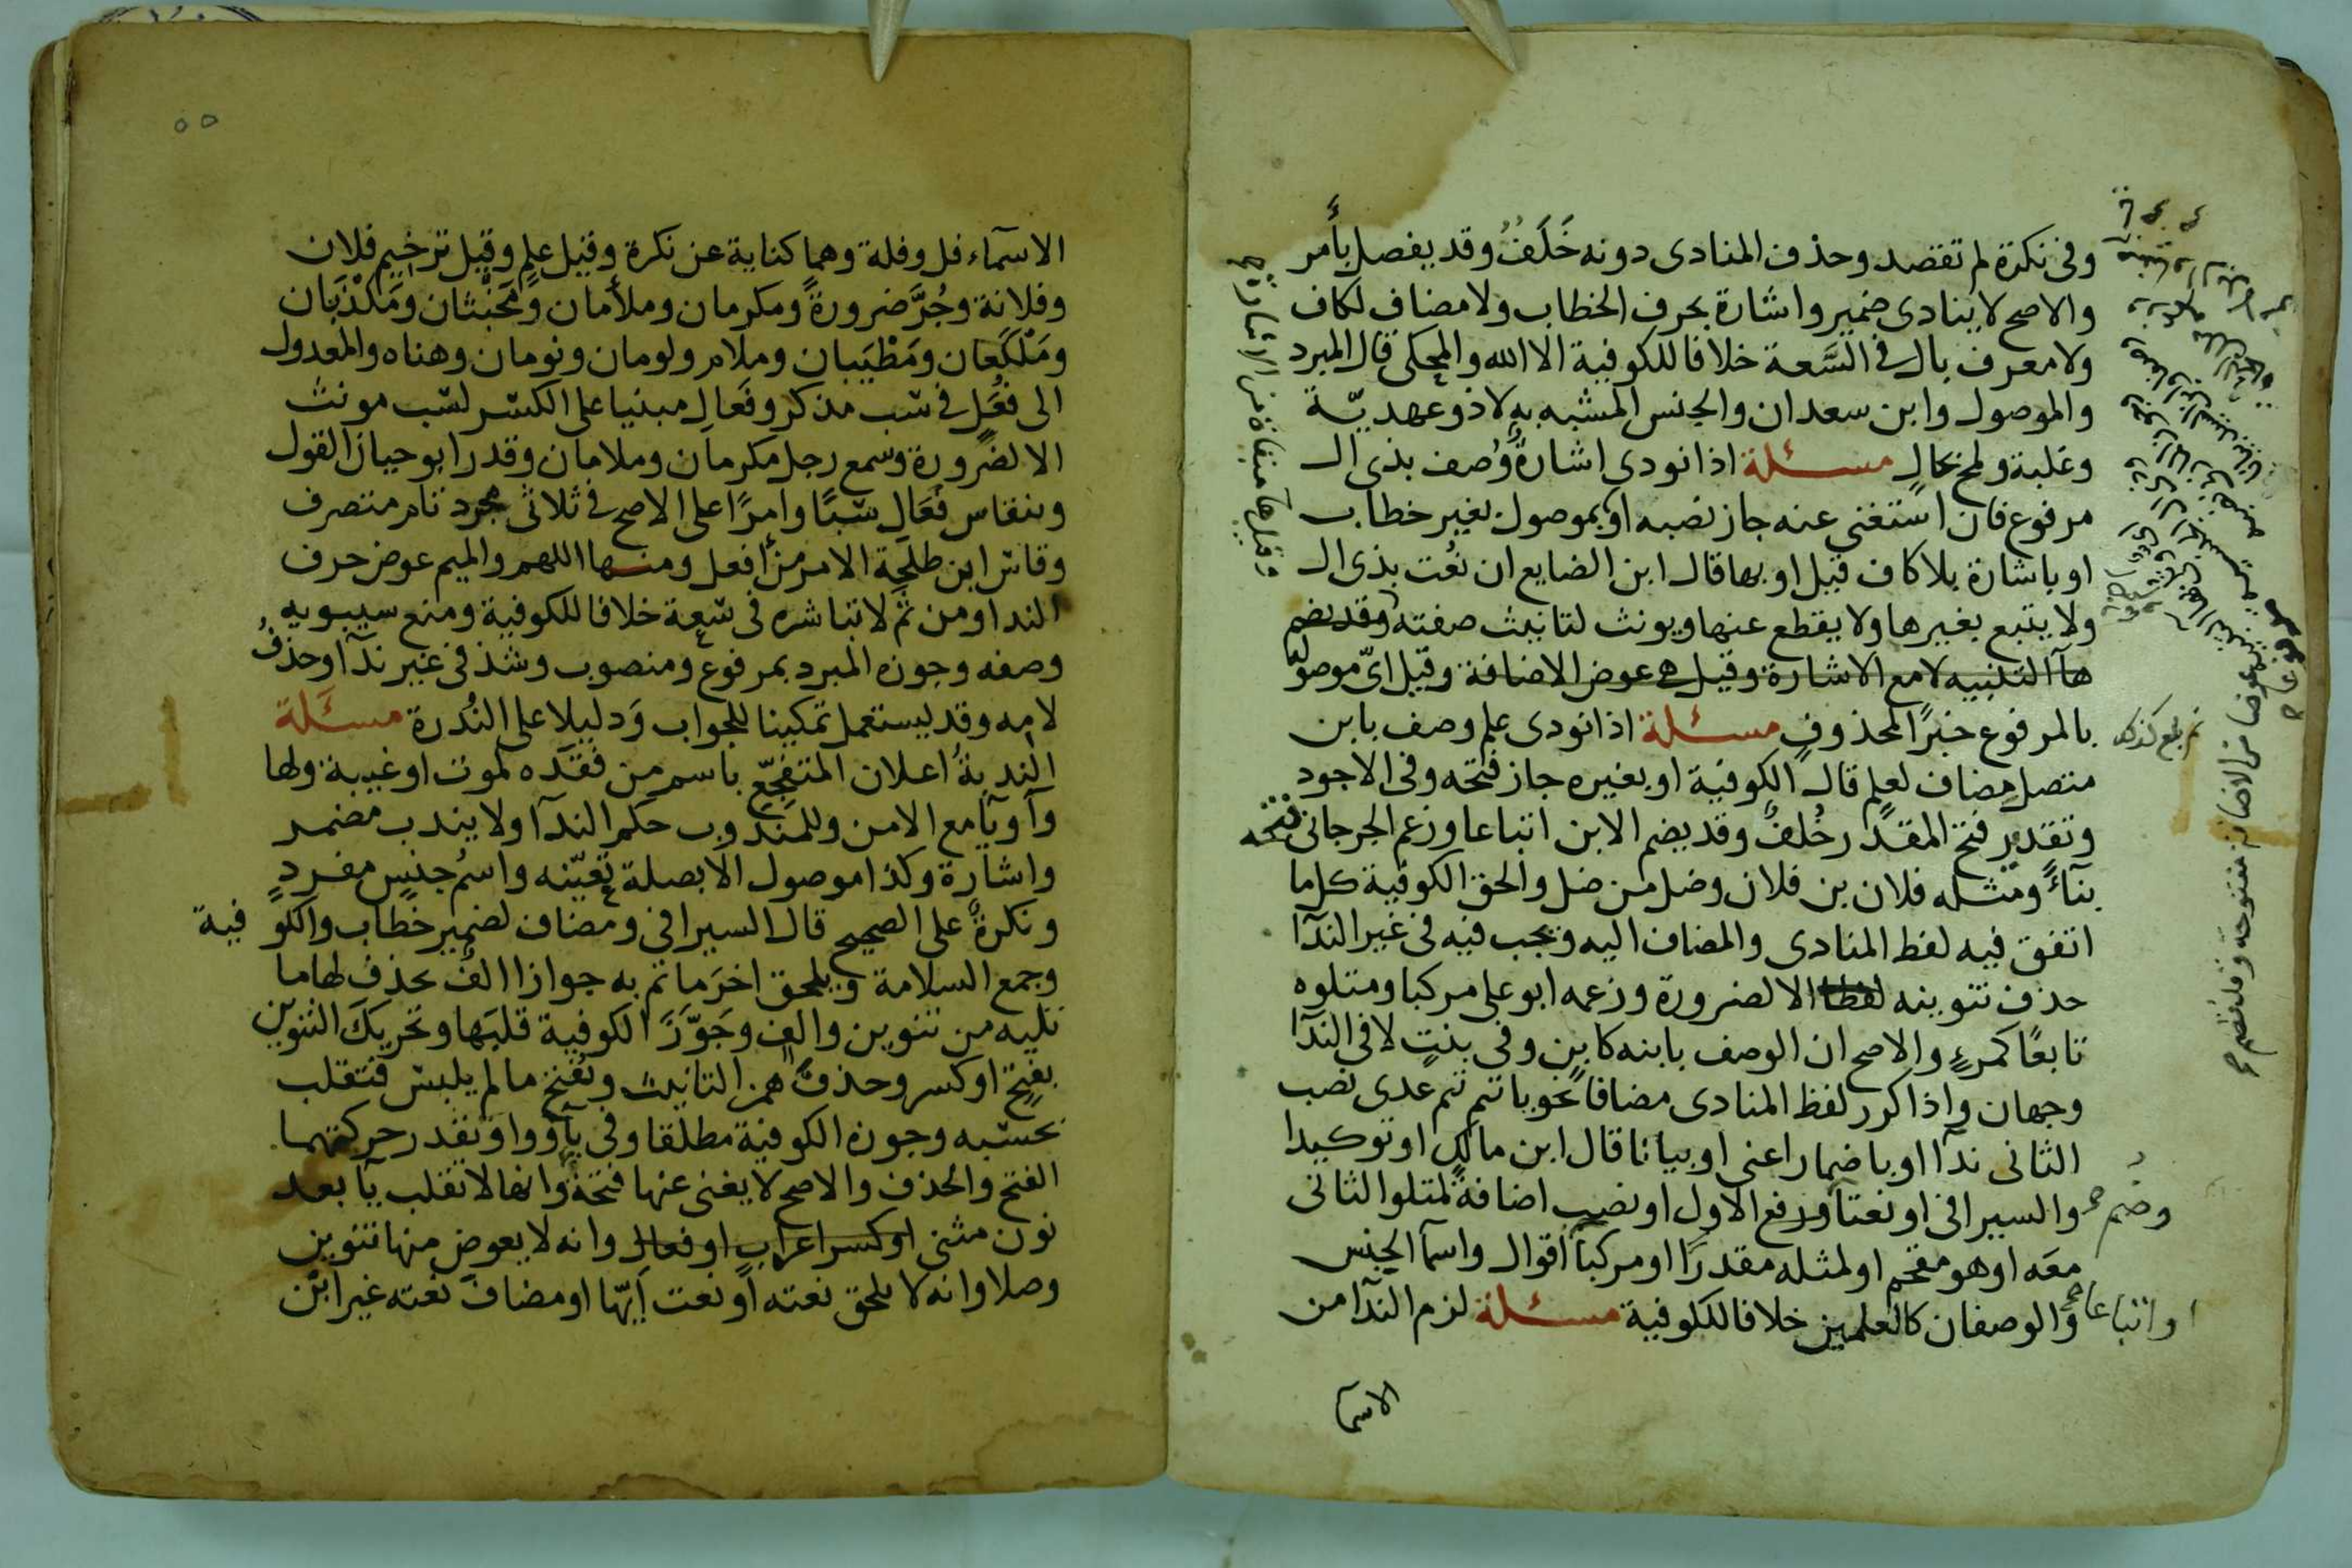 وفى نكرة لم تقصد وحذف المنادى دونه خَلَفٌ وقد يفصل بأمر
والاصح لا ينادى ضمير واشارة بحرف الخطاب ولا مضاف لكاف
ولا معرف بال فى السَّعة خلافا للكوفية الا الله والمحكى قال المبرد
والموصول وابن سعدان والجنس المشبه به لا ذو عهديّة
وغلبة ولمح بحال مسئلة اذا نودى اشارةٌ وُصف بذى ال
مرفوع فان استغنى عنه جاز نصبه او بموصول بغير خطاب
او باشارة بلا كاف قيل او بها قال ابن الضايع ان نُعت بذى ال
ولا يتبع بغيرها ولا يقطع عنها ويونث لتانيث صفته وقد يضم
هآ التنبيه لا مع الاشارة وقيل هى عوض الاضافة وقيل اىّ موصولا
بالمرفوع خبرًا لمحذوف مسئلة اذا نودى علم وصف بابن
متصل مضاف لعلم قال الكوفية او بغيره جاز فتحه وفى الاجود
وتقدير فتح المقدر خُلفٌ وقد يضم الابن اتباعا وزعم الجرجانى فتحه
بنآءً ومثله فلان بن فلان وضل من ضل والحق الكوفية كل ما
اتفق فيه لفظ المنادى والمضاف اليه ويجب فيه فى غير الندآ
حذف تنوينه لفظا الا لضرورة وزعمه ابو على مركبا ومتلوه
تابعًا كمرءٍ والاصح ان الوصف بابنه كابن وفى بنتٍ لا فى الندآ
وجهان واذا كرر لفظ المنادى مضافا نحو يا تيم تيم عدى نصب
الثانى ندآ او باضمار اعنى او بيانا قال ابن مالك او توكيدا
وضم والسيرافى او نعتا ورفع الاول او نصب اضافةً لمتلوا الثانى
معَه او هو مقحم او لمثله مقدرًا او مركبا اقوال واسمآ الجنس
او اتباعا والوصفان كالعلمين خلافا للكوفية مسئلة لزم الندآ من
الاسمآ
الاسمآء فل وفلة وهما كناية عن نكرة وقيل علم وقيل ترخيم فلان
وفلانة وجُرَّ ضرورةً ومكرمان وملأمان ومَخبثان ومَكْذَبان
ومَلْكَعان ومَطْيَبان وملام ولومان ونومان وهناه والمعدول
الى فُعَل فى سب مذكر وفَعَالِ مبنيا على الكسر لسب مونث
الا لضرورة وسمع رجل مكرمان وملامان وقدر ابو حيان القول
وينقاس فَعَالِ سبًا وامرًا على الاصح فى ثلاثى مجرد تام متصرف
وقاس ابن طلحة الامر من أفعل ومنها اللهم والميم عوض حرف
الندا ومن ثَم لا تباشره فى سعة خلافا للكوفية ومنع سيبويه
وصفه وجوزه المبرد بمرفوع ومنصوب وشذ فى غير ندآ وحذفُ
لامه وقد يستعمل تمكينا للجواب ودليلا على النُدرة مسئلة
الندبةُ اعلان المتفجع باسم من فقَدَه لموت او غيبة ولها
وآ ويآ مع الامن وللمندوب حكم الندآ ولا يندب مضمر
واشارة وكذا موصول الا بصلة تعيّنه واسْمُ جنسٍ مفردٍ
ونكرةٌ على الصحيح قال السيرافى ومضاف لضمير خطاب والكوفية
وجمع السلامة ويلحق اخرَ ما تم به جوازا الفٌ يحذف لها ما
تليه من تنوين والف وجَوَّزَ الكوفية قلبَها وتحريكَ التنوين
بفتح او كسر وحذفَ همز التانيث ويُفتح ما لم يلبس فتقلب
بحسبه وجوزه الكوفية مطلقا وفى يآ وواو تقدر حركتهما
الفتح والحذف والاصح لا يغنى عنها فتحةٌ وانها لا تقلب يآ بعد
نون مثنى او كسر اعراب او فعال وانه لا يعوض منها تنوين
وصلا وانه لا يلحق نعته او نعت اَيّها او مضاف نعته غير ابن